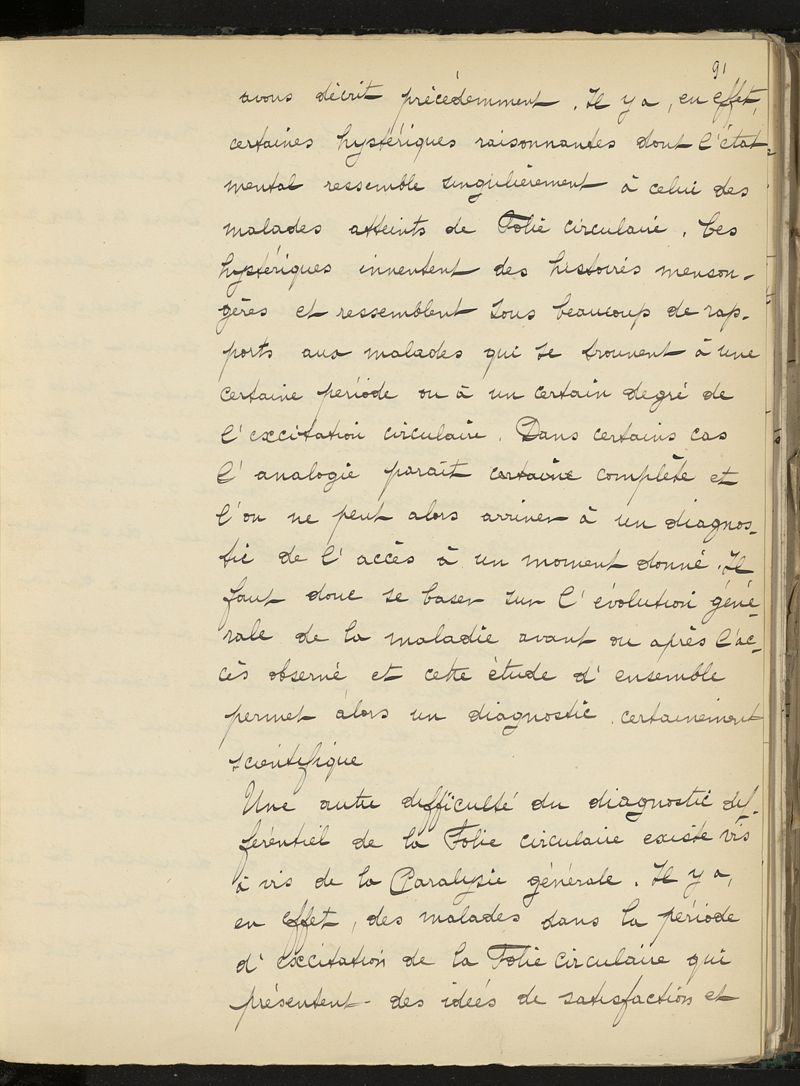 91
avons décrit précédemment. Il y a, en effet,
certaines hystériques raisonnantes dont l'état-
mental ressemble singulièrement à celui des
malades atteints de Folie circulaire. Ces
hystériques inventent des histoires menson-
gères et ressemblent sous beaucoup de rap-
ports aux malades qui se trouvent à une
certaine période ou à un certain degré de
l'excitation circulaire. Dans certains cas
l'analogie parait certaine complète et
l'on ne peut alors arriver à un diagnos-
tic de l'accès à un moment donné. Il
faut donc se baser sur l'évolution géné-
rale de la maladie avant ou après l'ac-
cès observé et cette étude d'ensemble
permet alors un diagnostic certainement
scientifique
Une autre difficulté du diagnostic dif-
férentiel de la Folie circulaire existe vis
à vis de la Paralysie générale. Il y a,
en effet, des malades dans la période
d'excitation de la Folie circulaire qui
présentent des idées de satisfaction et